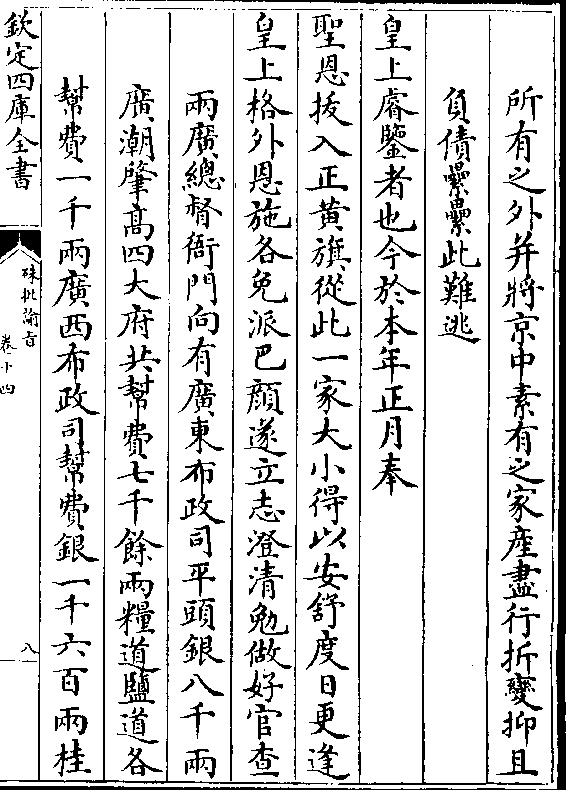 所有之外并將京中素有之家産盡行折變抑且
負債纍纍此難逃
皇上睿鑒者也今於本年正月奉
聖恩拔入正黄旗從此一家大小得以安舒度日更逢
皇上格外恩施各免派巴顔遂立志澄清勉做好官查
兩廣總督衙門向有廣東布政司平頭銀八千兩
廣潮肇高四大府共幫費七千餘兩糧道鹽道各
幫費一千兩廣西布政司幫費銀一千六百兩桂
欽定四庫全書
硃批諭旨
卷十四
八